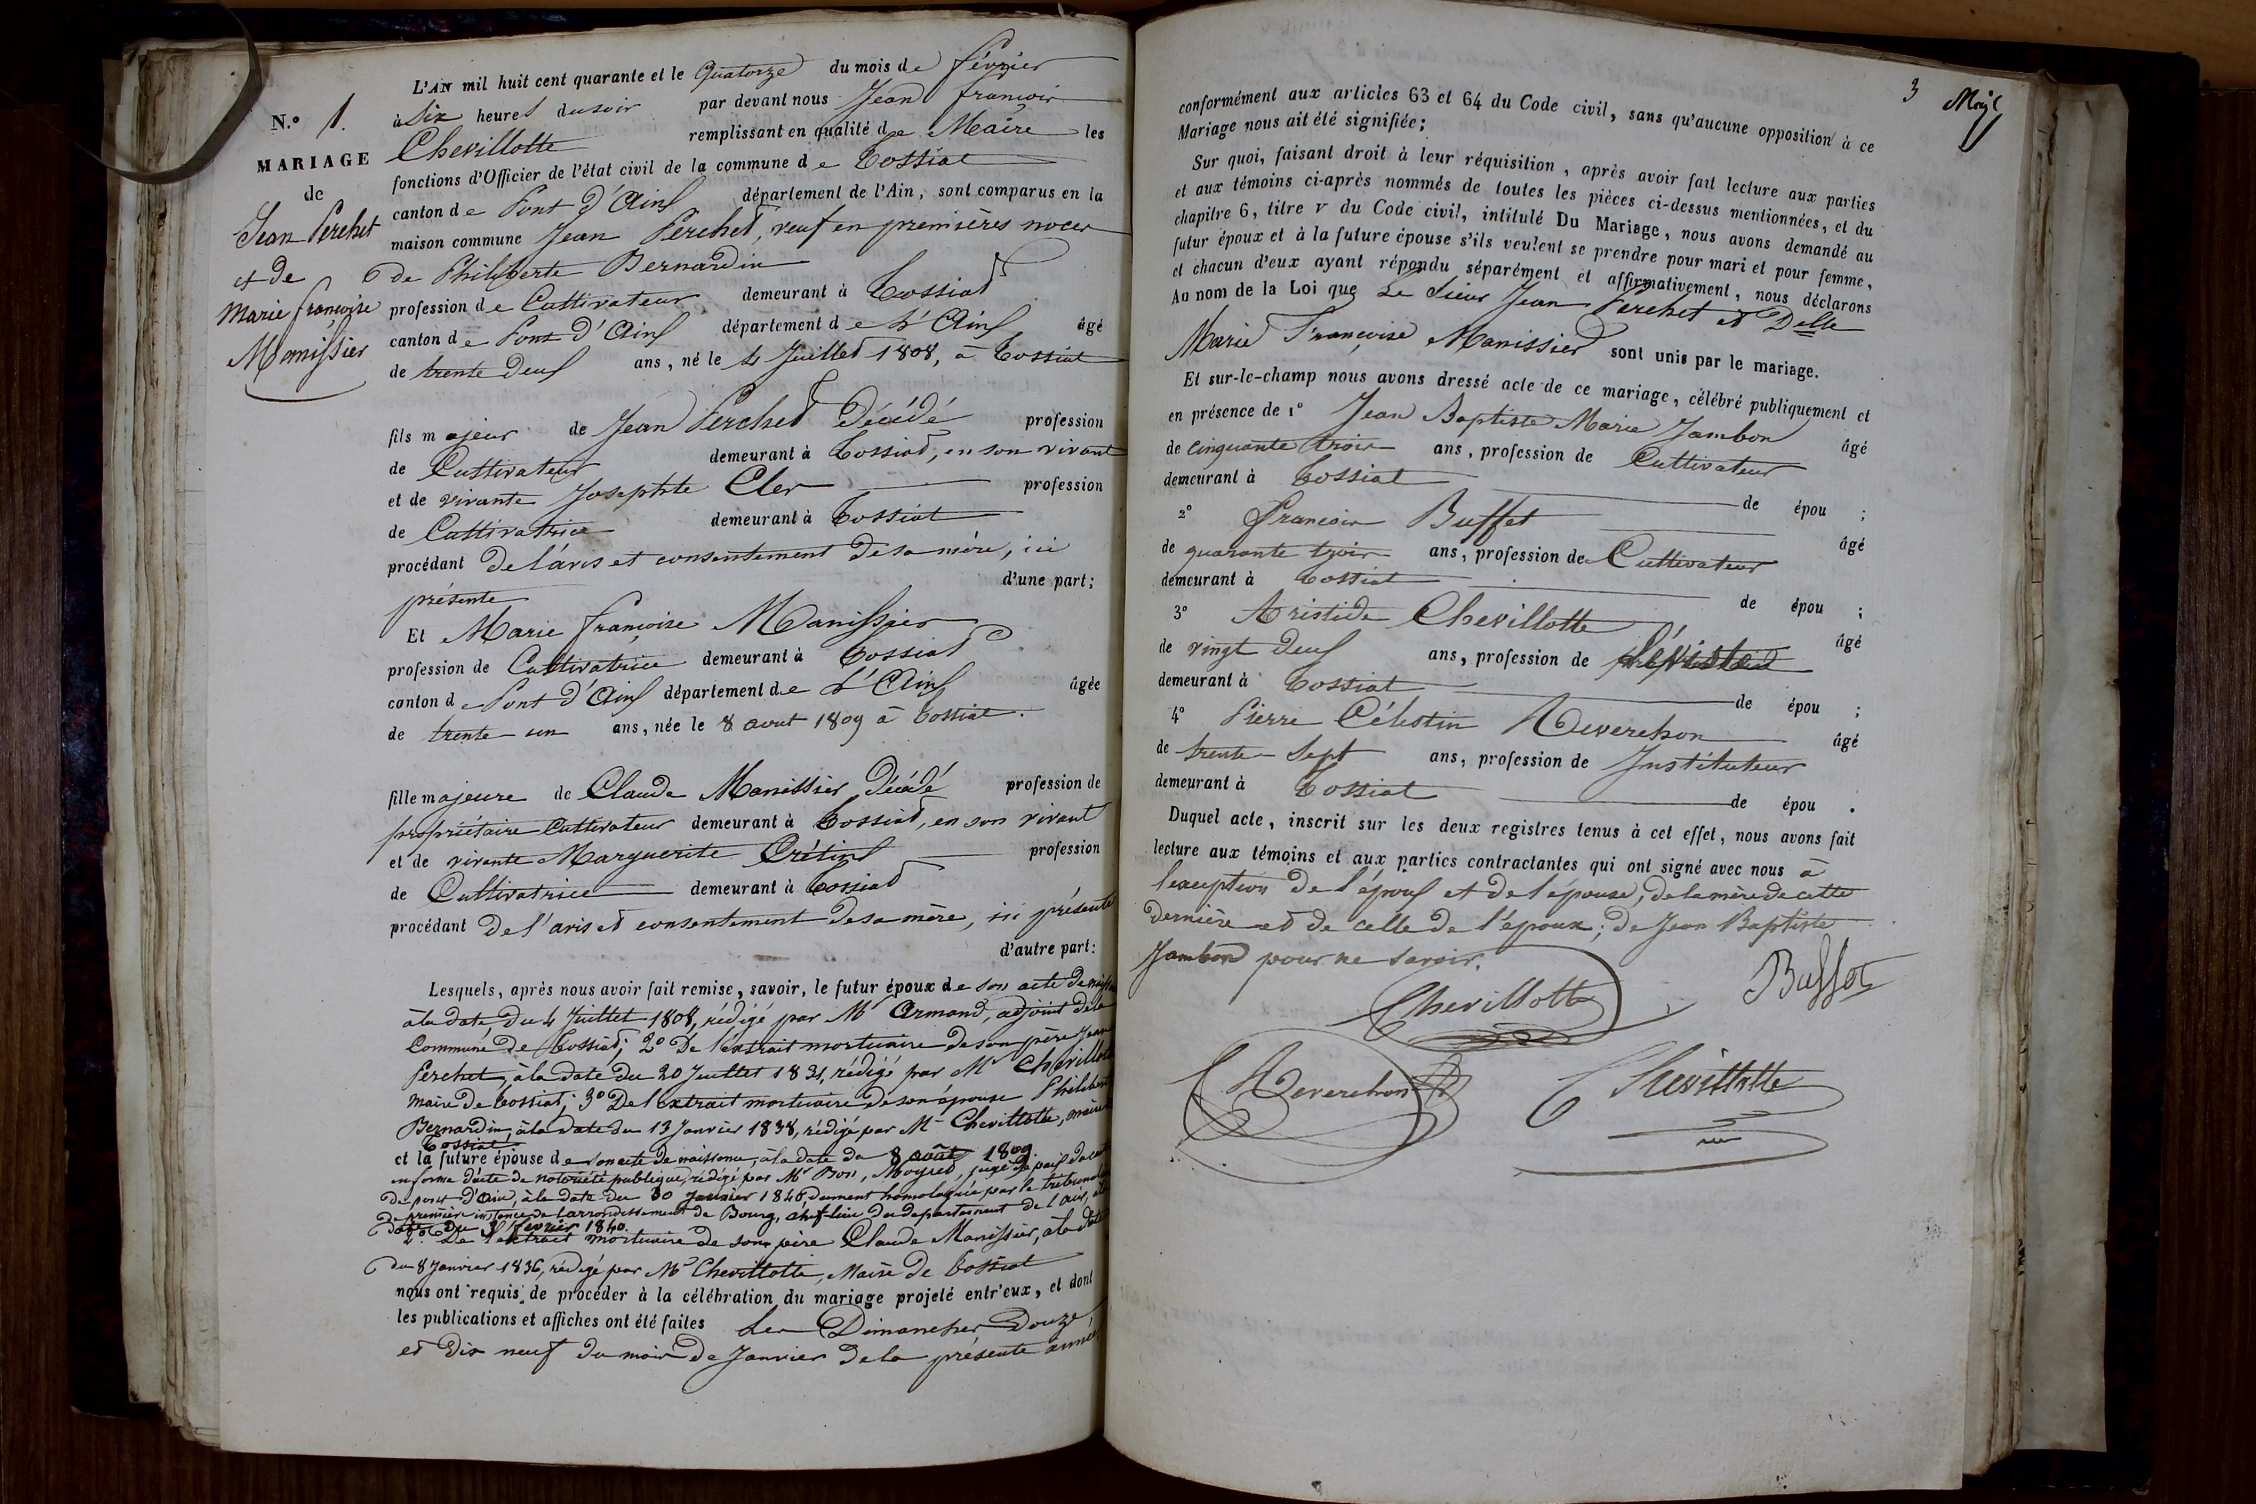 N.º 1.
MARIAGE
de
Jean Perchet
et de
Marie françoise
Manissier
L'AN mil huit cent quarante et le Quatorze du mois de février
à Six heures du soir par devant nous Jean françois
Chevillotte remplissant en qualité de Maire les
fonctions d'Officier de l'état civil de la commune de Tossiat
canton de Pont d'Ain département de l'Ain, sont comparus en la
maison commune Jean Perchet, veuf en premières noces
de Philiberte Bernardin
profession de Cultivateur demeurant à Tossiat
canton de Pont d'Ain département de L'Ain âgé
de trente deux ans, né le 4 Juillet 1808, à Tossiat
fils majeur de Jean Perchet Décédé profession
de Cultivateur demeurant à Tossiat, en son vivant
et de vivante Josephte Cler profession
de Cultivatrice demeurant à Tossiat
procédant De l'avis et consentement de sa mère, ici
présente d'une part;
Et Marie françoise Manissier
profession de Cultivatrice demeurant à Tossiat
canton de Pont d'Ain département de L'Ain âgée
de trente un ans, née le 8 aout 1809 à Tossiat.
fille majeure de Claude Manissier Décédé profession de
propriétaire Cultivateur demeurant à Tossiat, en son vivant
et de vivante Marguerite Crétin profession
de Cultivatrice demeurant à Tossiat
procédant De l'avis et consentement de sa mère, ici présente
d'autre part:
Lesquels, après nous avoir fait remise, savoir, le futur époux de son acte de naiss
à la date du 4 Juillet 1808, rédigé par Mr Armand, adjoint de la
Commune de Tossiat; 2º De l'extrait mortuaire de son père Jean
Perchet, à la date du 20 Juillet 1831, rédigé par Mr Chevillotte
Maire de Tossiat; 3º De l'extrait mortuaire de son épouse Philiberte
Bernardin, à la date du 13 Janvier 1838, rédigé par Mr Chevillotte, maire
Tossiat;
et la future épouse de son acte de naissance, à la date du 8 août 1809
en forme d'acte de notoriété publique, rédigé par Mr Bon, Moyret, juge de paix du canton
De pont d'Ain, à la date du 30 Janvier 1840, dument homologuée par le tribunal
De première instance de l'arrondissement de Bourg, chef lieu du département de l'ain, à la
date du 3 février 1840.
2º. De l'extrait mortuaire de son père Claude Manissier, à la date
du 8 Janvier 1836, rédigé par Mr Chevillotte, Maire de Tossiat
nous ont requis de procéder à la célébration du mariage projeté entr'eux, et dont
les publications et affiches ont été faites Les Dimanches Douze
et Dix neuf du mois de Janvier de la présente année
3
conformément aux articles 63 et 64 du Code civil, sans qu'aucune opposition à ce
Mariage nous ait été signifiée;
Sur quoi, faisant droit à leur réquisition, après avoir fait lecture aux parties
et aux témoins ci-après nommés de toutes les pièces ci-dessus mentionnées, et du
chapitre 6, titre v du Code civil, intitulé Du Mariage, nous avons demandé au
futur époux et à la future épouse s'ils veulent se prendre pour mari et pour femme,
et chacun d'eux ayant répondu séparément et affirmativement, nous déclarons
Au nom de la Loi que Le Sieur Jean Perchet et Delle
Marie Françoise Manissier sont unis par le mariage.
Et sur-le-champ nous avons dressé acte de ce mariage, célébré publiquement et
en présence de 1º Jean Baptiste Marie Jambon âgé
de Cinquante trois ans, profession de Cultivateur
demeurant à Tossiat de épou ;
2º François Buffet âgé
de quarante trois ans, profession de Cultivateur
demeurant à Tossiat de épou ;
3º Aristide Chevillotte âgé
de vingt deux ans, profession de
demeurant à Tossiat de épou ;
4º Pierre Célestin Reverchon âgé
de trente Sept ans, profession de Instituteur
demeurant à Tossiat de épou .
Duquel acte, inscrit sur les deux registres tenus à cet effet, nous avons fait
lecture aux témoins et aux parties contractantes qui ont signé avec nous à
l'exception de l'époux et de l'épouse, de la mère de cette
dernière et de celle de l'époux; de Jean Baptiste
Jambon pour ne savoir.
Chevillotte
Buffet
Reverchon
Chevillotte